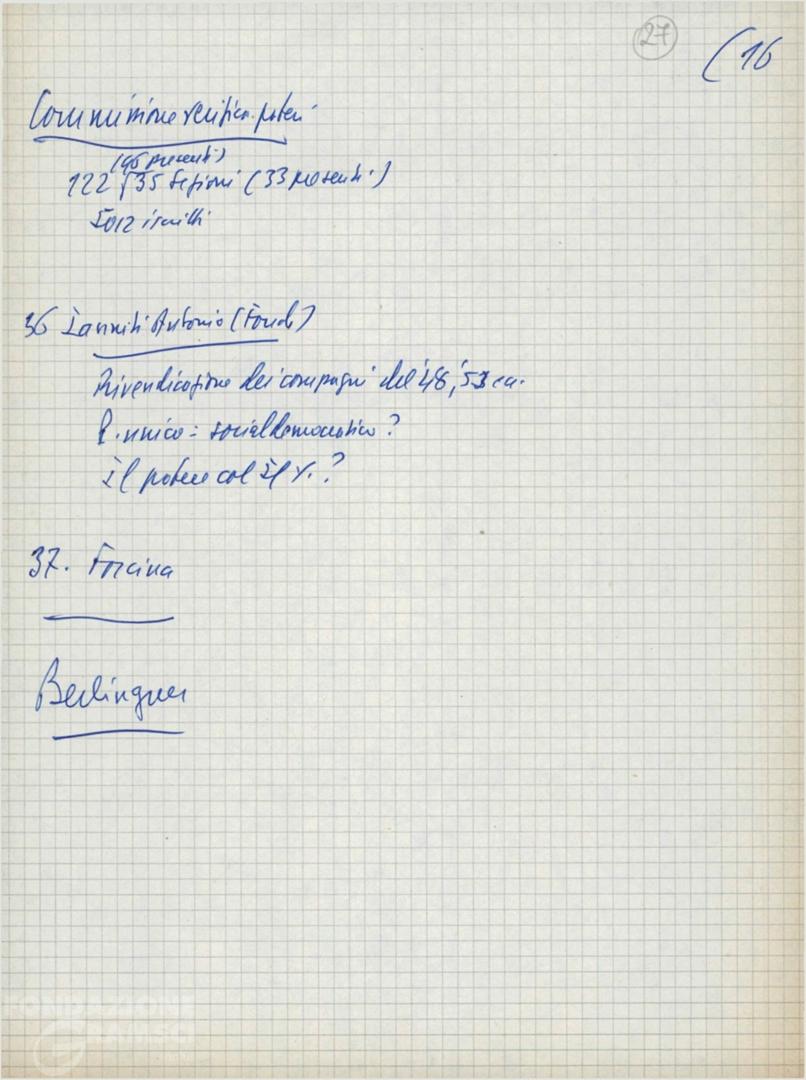 27
(16
Commissione verifica poteri
(96 presenti)
122 / 35 Sezioni (33 presenti)
5012 iscritti
36 Ianniti Antonio (Fondi)
Rivendicazione dei compagni del '48, '53 ecc.
P. unico = socialdemocratico?
Il potere col
37. Forcina
Berlinguer
FONDAZIONE
GRAMSCI